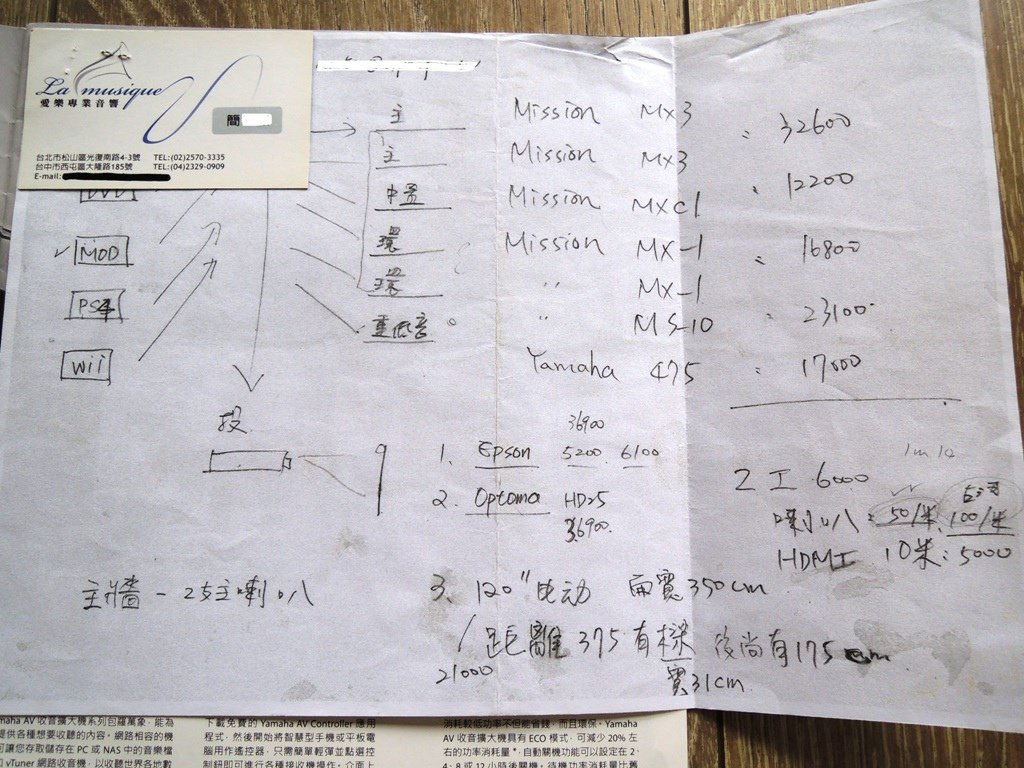 La musique
愛樂專業音響
簡
台北市松山區光復南路4-3號 TEL:(02)2570-3335
台中市西屯區大隆路185號 TEL:(04)2329-0909
E-mail:
主 Mission MX3 : 32600
主 Mission MX3
中置 Mission MXC1 : 12200
環 Mission MX-1 : 16800
環 〃 MX-1
重低音 〃 MS-10 : 23100
Yamaha 475 : 17000
MOD
PS4
Wii
投
36900
1. Epson 5200 6100
2. Optoma HD25
36900
2工 6000
喇叭: 50/米 100/米
HDMI 10米: 5000
主牆 - 2支主喇叭
3. 120" 电动 面寬350cm
21000
距離375有樑 後尚有175cm
寬31cm
maha AV 收音擴大機系列包羅萬象,能為
提供各種想要收聽的內容。網路相容的機
可讓您存取儲存在 PC 或 NAS 中的音樂檔
vTuner 網路收音機,以收聽世界各地數
下載免費的 Yamaha AV Controller 應用
程式,然後開始將智慧型手機或平板電
腦用作遙控器,只需簡單輕彈並點選控
制鈕即可進行各種接收機操作。介面上
消耗較低功率不但能省錢,而且環保。Yamaha
AV 收音擴大機具有 ECO 模式,可減少 20% 左
右的功率消耗量*,自動關機功能可以設定在 2、
4、8 或 12 小時後關機。待機功率消耗量比舊